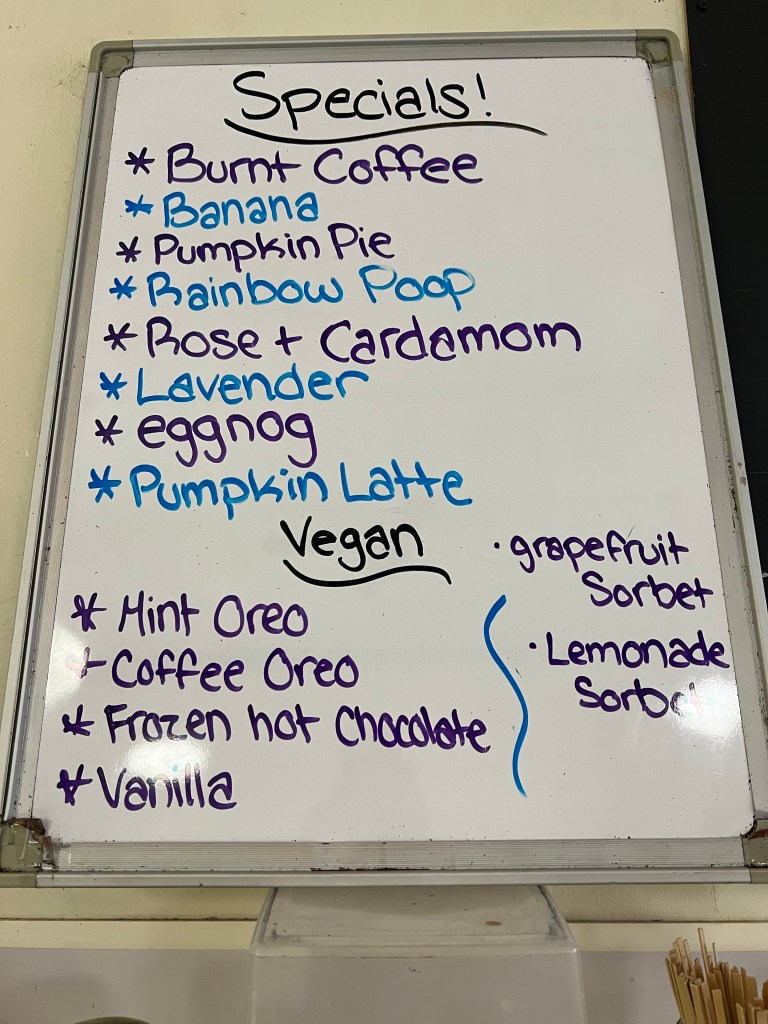 Specials!
* Burnt Coffee
* Banana
* Pumpkin Pie
* Rainbow Poop
* Rose + Cardamom
* Lavender
* eggnog
* Pumpkin Latte
Vegan
* Mint Oreo
* Coffee Oreo
* Frozen hot Chocolate
* Vanilla
· grapefruit
Sorbet
· Lemonade
Sorbet